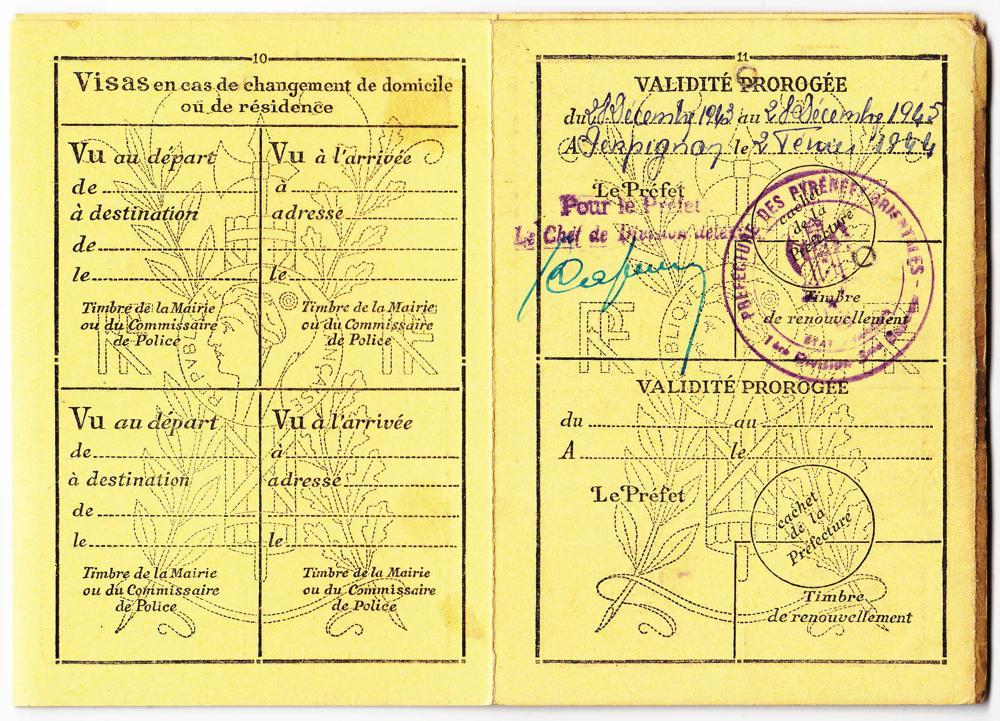 10
Visas en cas de changement de domicile
ou de résidence
Vu au départ
de
à destination
de
le
Timbre de la Mairie
ou du Commissaire
de Police
Vu à l'arrivée
à
adresse
le
Timbre de la Mairie
ou du Commissaire
de Police
Vu au départ
de
à destination
de
le
Timbre de la Mairie
ou du Commissaire
de Police
Vu à l'arrivée
à
adresse
le
Timbre de la Mairie
ou du Commissaire
de Police
RF
RÉPUBLIQUE FRANÇAISE
11
VALIDITÉ PROROGÉE
du 28 Décembre 1943 au 28 Décembre 1945
A Perpignan le 2 Février 1944
Le Préfet
Pour le Préfet
Le Chef de Division délé
cachet
de la
Préfecture
PRÉFECTURE DES PYRÉNÉES-ORIENTALES
ÉTAT
1ère Division
Timbre
de renouvellement
RF
VALIDITÉ PROROGÉE
du au
A le
Le Préfet
cachet
de la
Préfecture
Timbre
de renouvellement